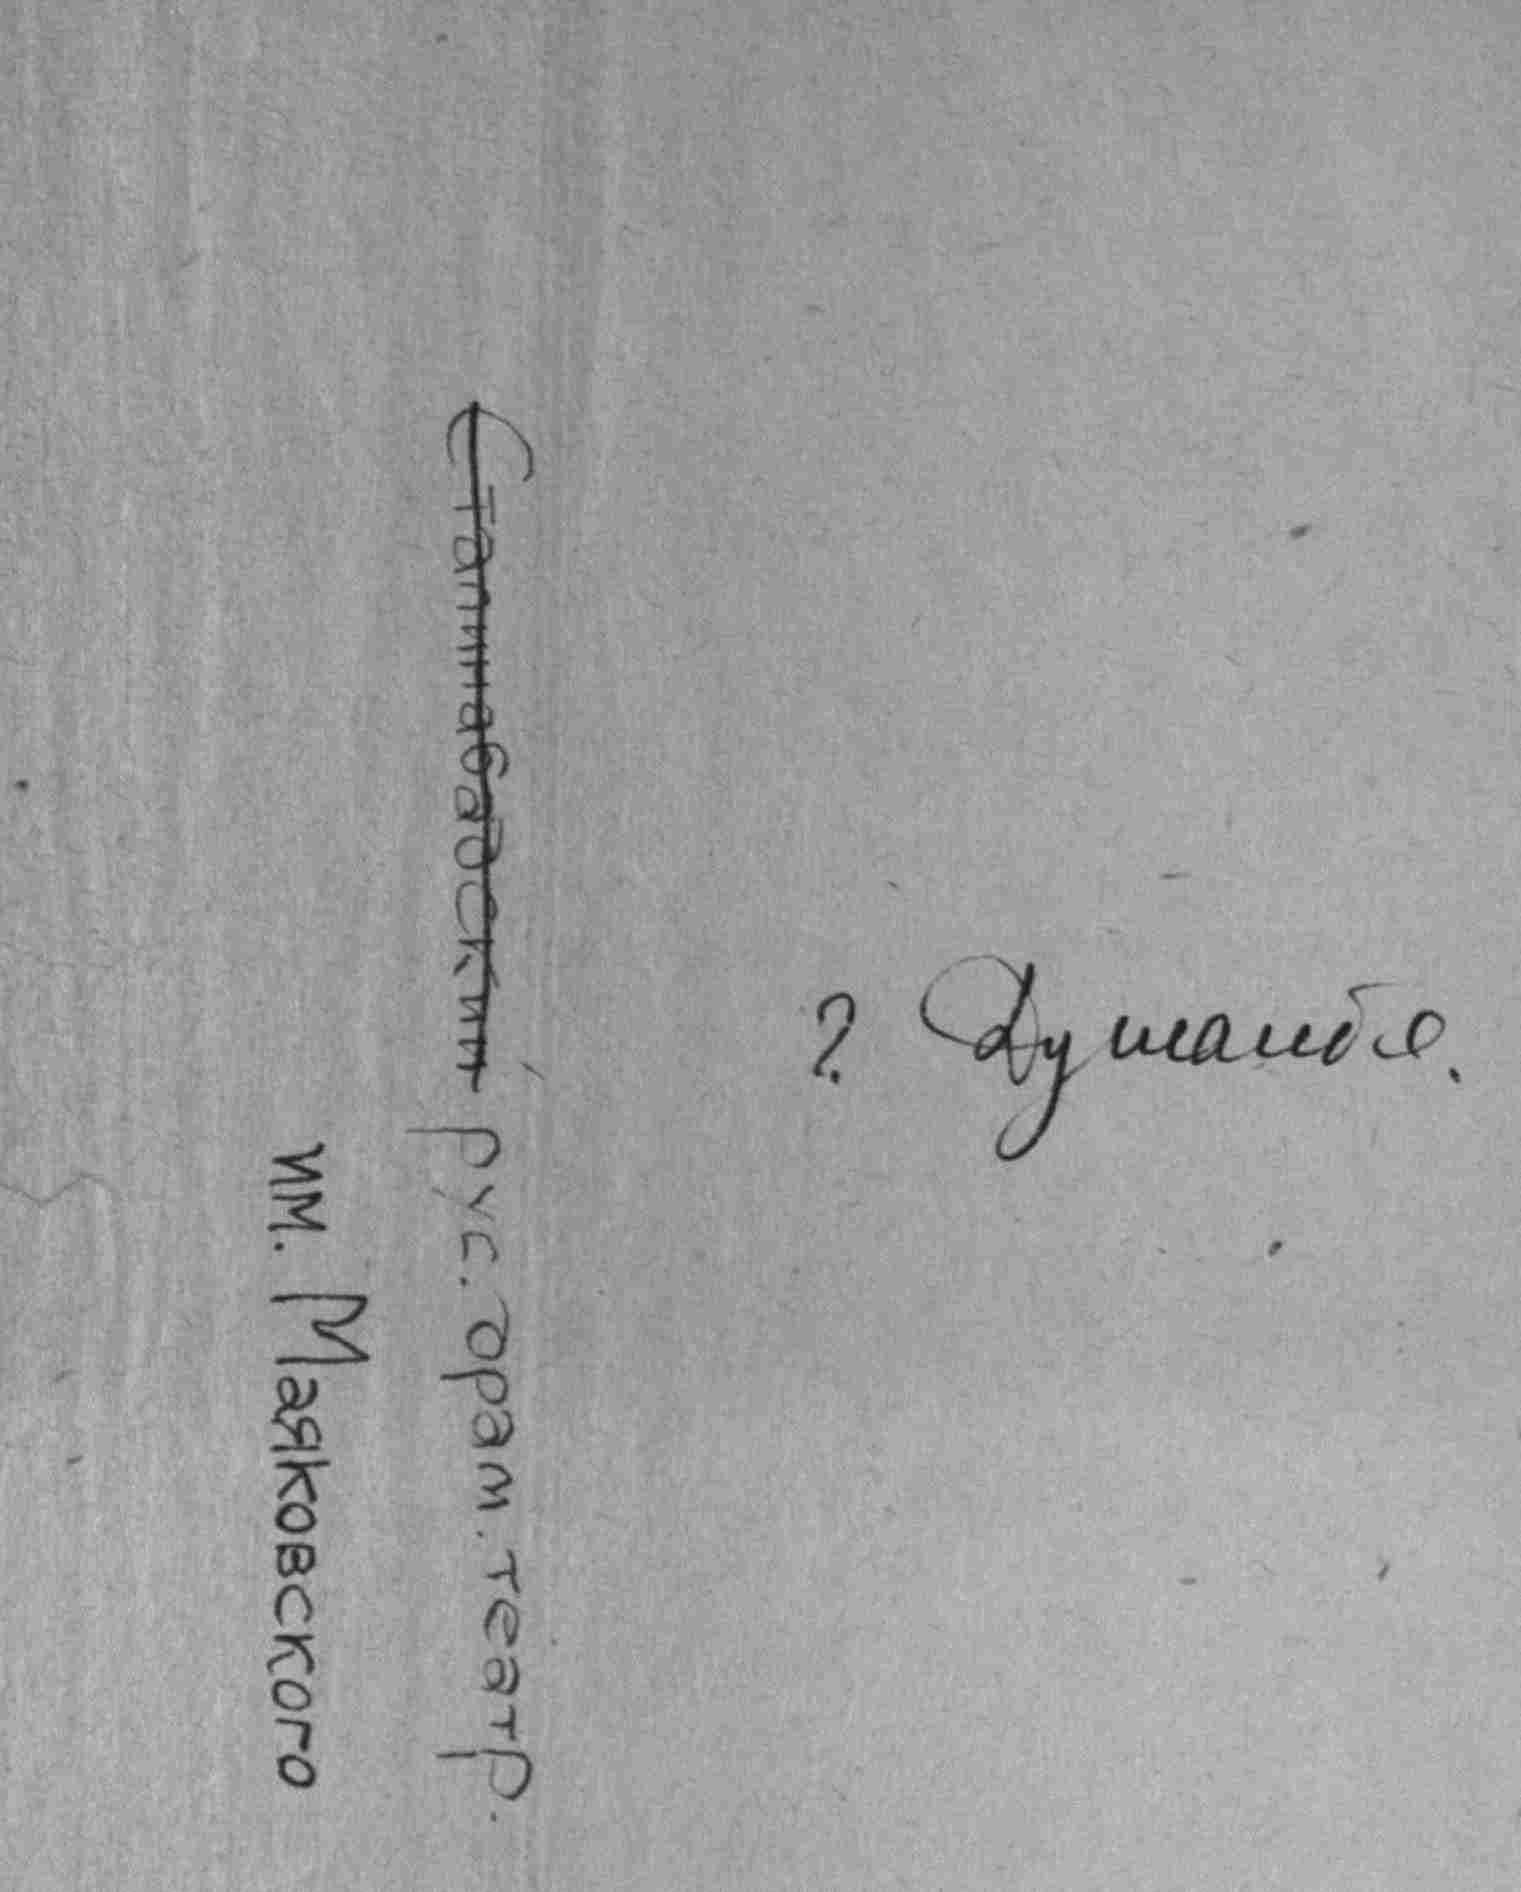 Сталинабадский рус. драм. театр.
им. Маяковского
г. Душанбе.